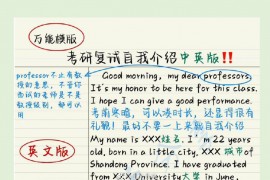 万能模版
考研复试自我介绍中英版!!
professor不止有教
授的意思，不管你
面试的老师是不是
教授级别，都可以
用
Good morning, my dear professors.
It's my honor to be here for this class.
I hope I can give a good performance.
考前寒暄，可以凑时长，还显得很有
礼貌！最好不要一上来就自我介绍
英文版
My name is XXX姓名. I'm 22 years
old, born in a little city, XXX 城市 of
Shandong Province. I have graduated
from XXX University大学 in June,